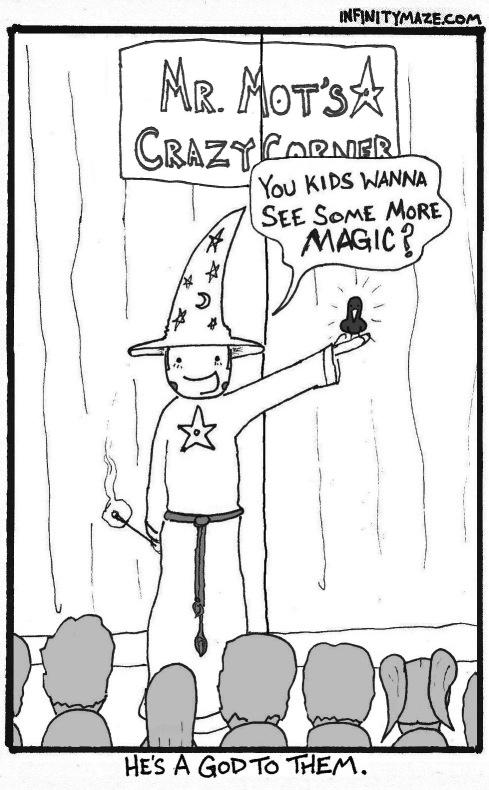 INFINITYMAZE.COM
MR. MOT'S
CRAZY CORNER
YOU KIDS WANNA
SEE SOME MORE
MAGIC?
HE'S A GOD TO THEM.